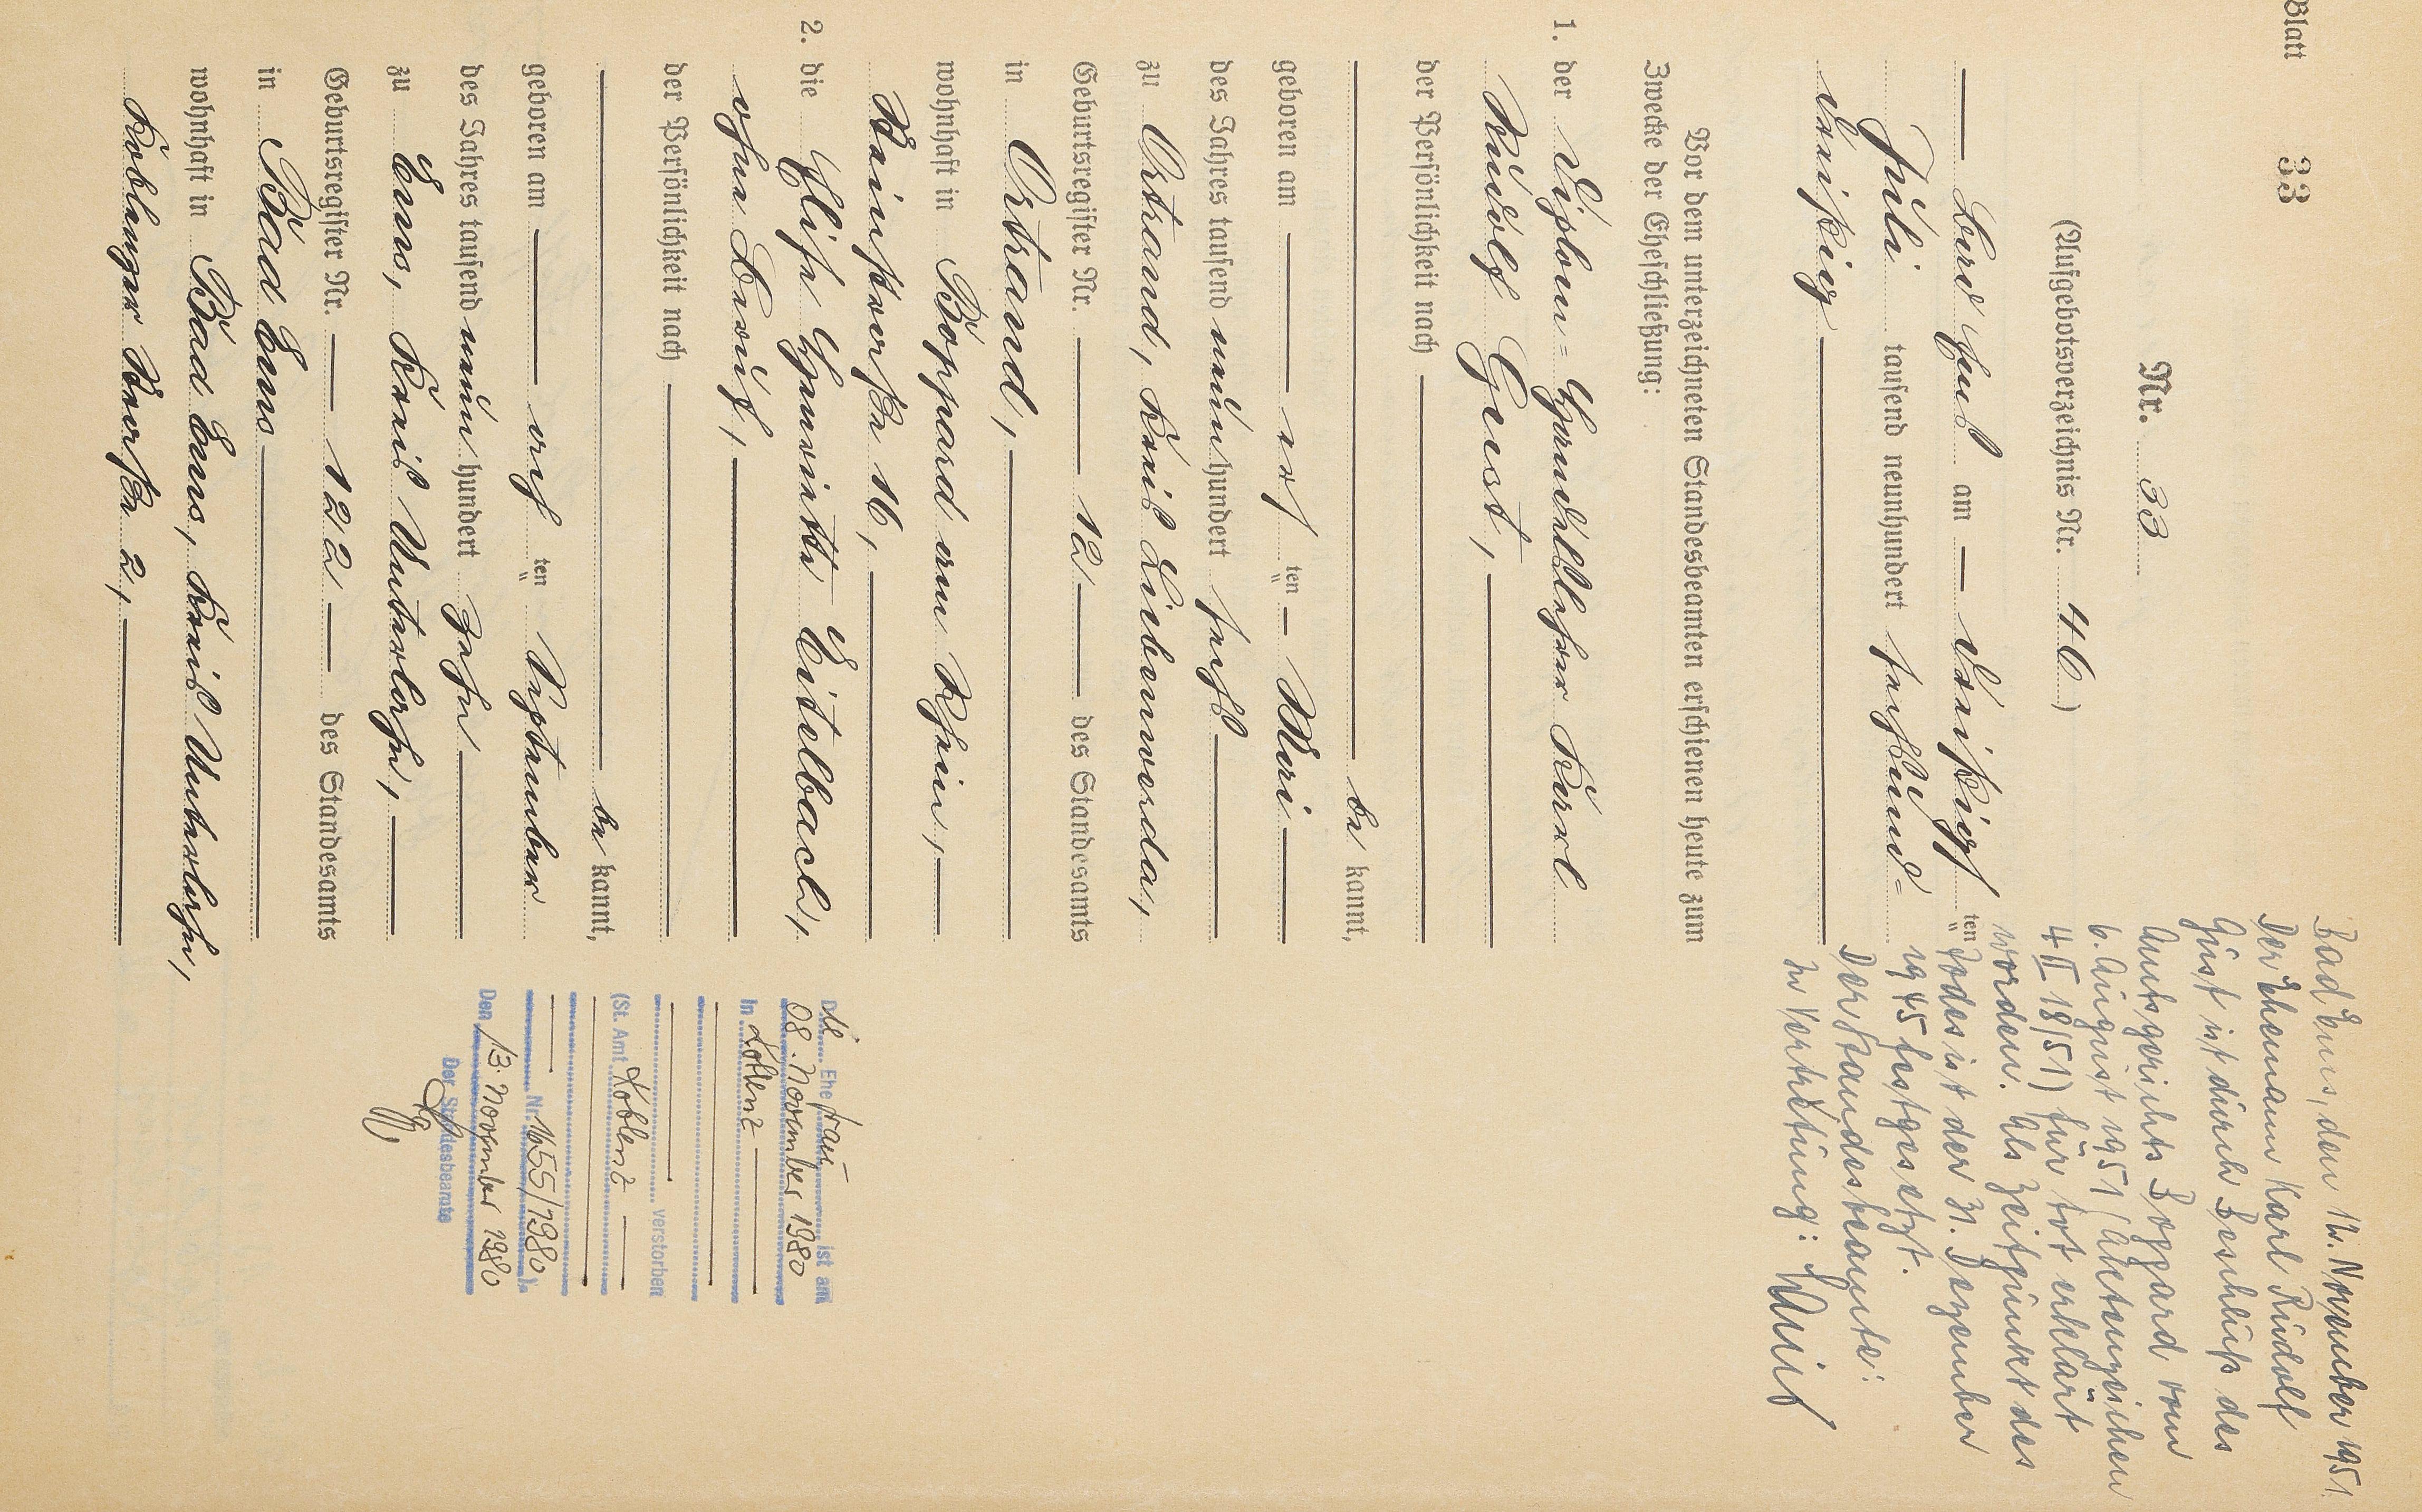 Blatt 33
Nr. 33
(Aufgebotsverzeichnis Nr. 46)
Bad Ems am dreißigsten
Juli tausend neunhundert sechsund-
dreißig
Vor dem unterzeichneten Standesbeamten erschienen heute zum
Zwecke der Eheschließung:
1. der Diplom-Handelslehrer Karl
Rudolf Gust,
der Persönlichkeit nach
be kannt,
geboren am ten Mai
des Jahres tausend neun hundert sechs
zu Ortrand, Kreis Liebenwerda,
Geburtsregister Nr. 12 des Standesamts
in Ortrand,
wohnhaft in Boppard am Rhein,
Mainzerstraße 16,
2. die Elise Henriette Eitelbach,
ohne Beruf,
der Persönlichkeit nach
be kannt,
geboren am ten September
des Jahres tausend neun hundert zehn
zu Ems, Kreis Unterlahn,
Geburtsregister Nr. 122 des Standesamts
in Bad Ems
wohnhaft in Bad Ems, Kreis Unterlahn,
Koblenzer Straße 2,
Bad Ems, den 12. November 1951
Der Ehemann Karl Rudolf
Gust ist durch Beschluß des
Amtsgerichts Boppard vom
6. August 1951 (Aktenzeichen
4 II 18/51) für tot erklärt
worden. Als Zeitpunkt des
Todes ist der 31. Dezember
1945 festgesetzt.
Der Standesbeamte:
In Vertretung:
Die Ehefrau ist am
08. November 1980
in Koblenz
verstorben
(St. Amt Koblenz
Nr. 1655/1980).
Den 13. November 1980
Der Standesbeamte